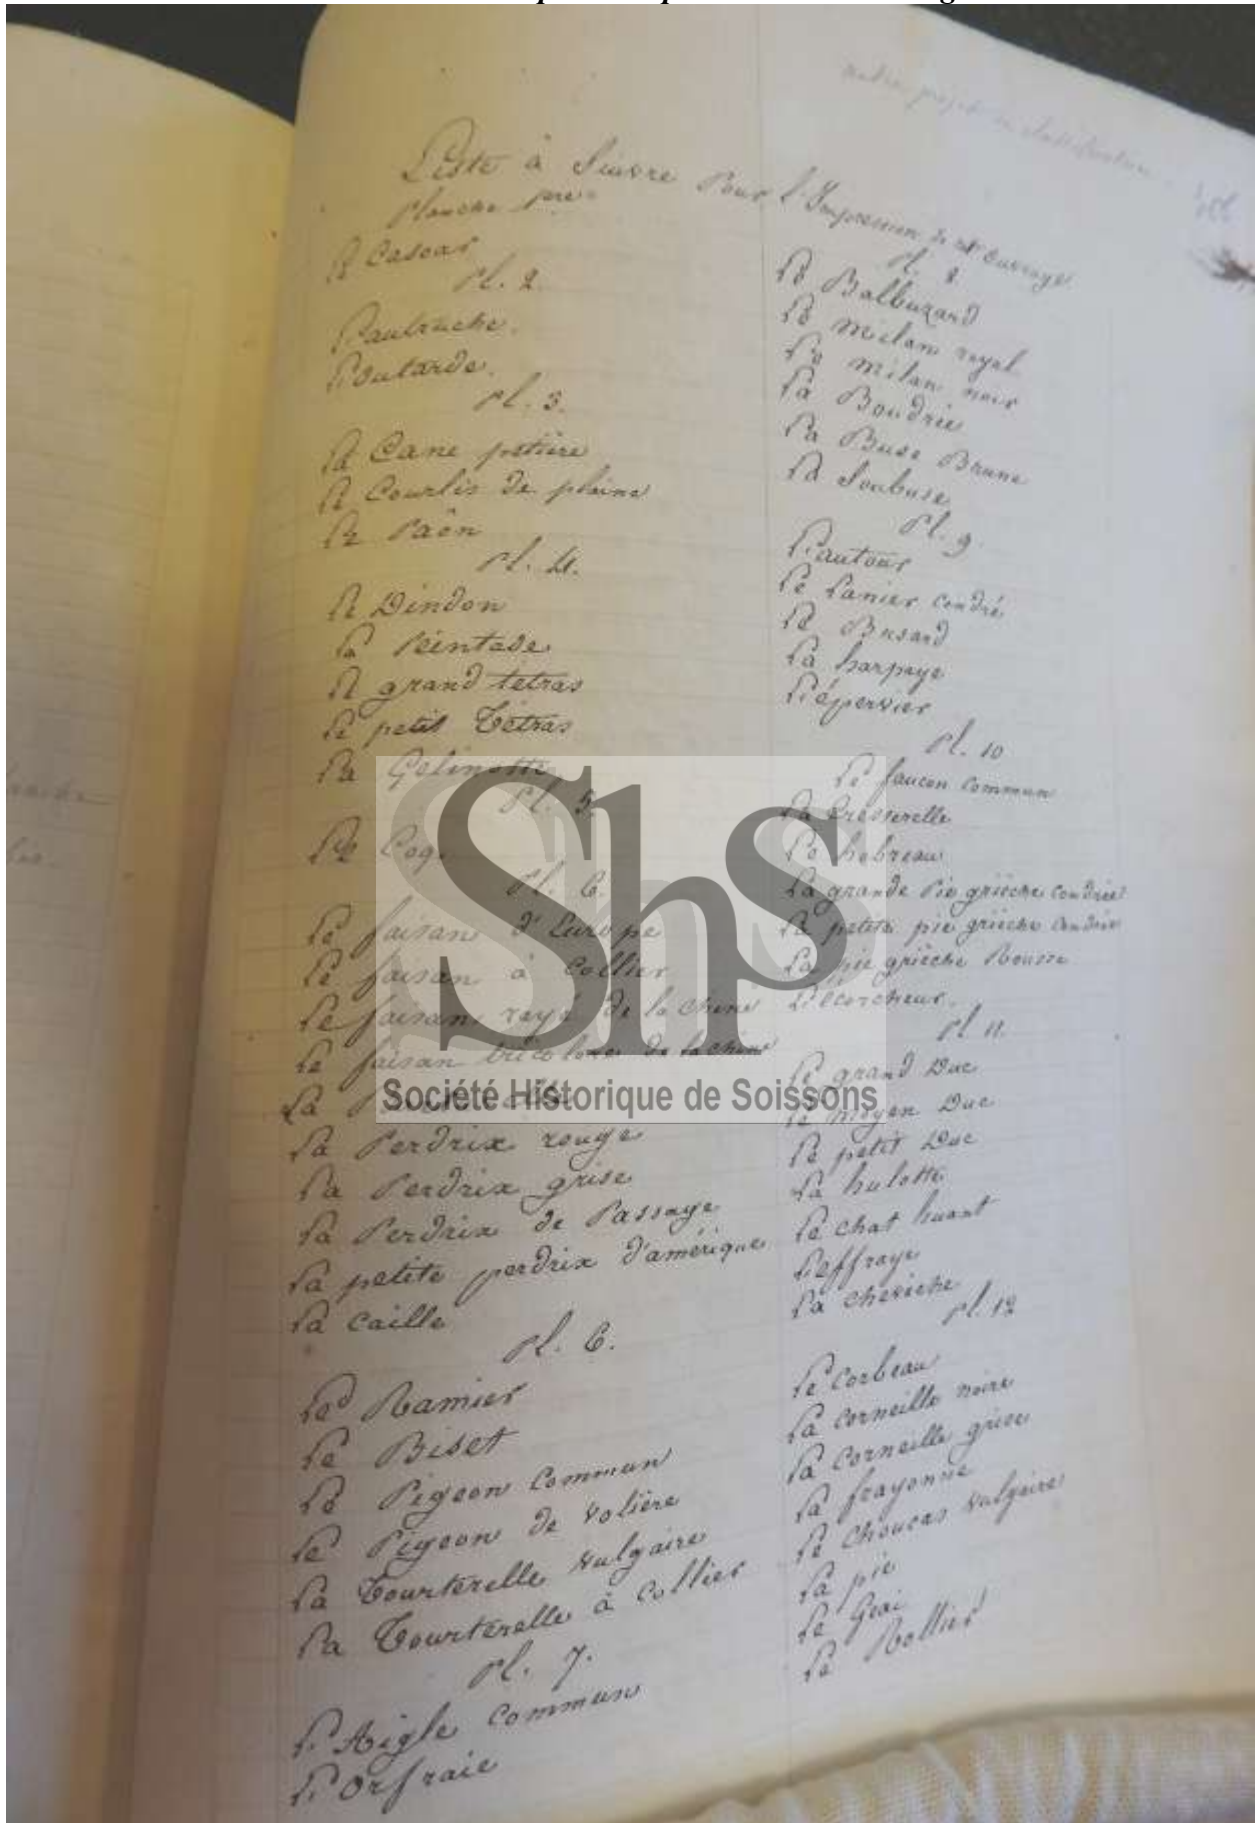 Liste à Suivre Pour l'Impression de cet ouvrage
Planche pre.
Le Casoar
Pl. 2.
L'autruche.
L'outarde.
Pl. 3.
La Cane petière
Le Courlis de plaine
Le Paôn
Pl. 4.
Le Dindon
La Peintade
Le grand tetras
Le petit Tétras
La Gelinotte
Pl. 5.
Le Coq.
Pl. 6.
Le faisan d'Europe
Le faisan à Collier
Le faisan rayé de la chine
Le faisan tricolore de la chine
La
La Perdrix rouge
La Perdrix grise
La Perdrix de Passage
La petite perdrix d'amérique
La Caille
Pl. 6.
Le Ramier
Le Biset
Le Pigeon Commun
Le Pigeon de volière
La Tourterelle vulgaire
La Tourterelle à Collier
Pl. 7.
L'Aigle Commun
L'Orfraie
Pl. 8
Le Balbuzard
Le Milan royal
Le Milan noir
La Boudrée
La Buse Brune
La Soubuse
Pl. 9.
L'autour
Le Lanier cendré
Le Busard
La harpaye
L'épervier
Pl. 10
Le faucon Commun
La Cresserelle
Le hobreau
La grande Pie grièche cendrée
La petite pie grièche cendrée
La pie grièche Rousse
L'écorcheur.
Pl. 11.
Le grand Duc
Le moyen Duc
Le petit Duc
La hulotte
Le chat huant
L'effraye
La cheveche
Pl. 12
Le Corbeau
La corneille noire
La Corneille grise
La frayonne
Le Choucas vulgaire
La pie
Le Geai
Le Rollier
Shs
Société Historique de Soissons